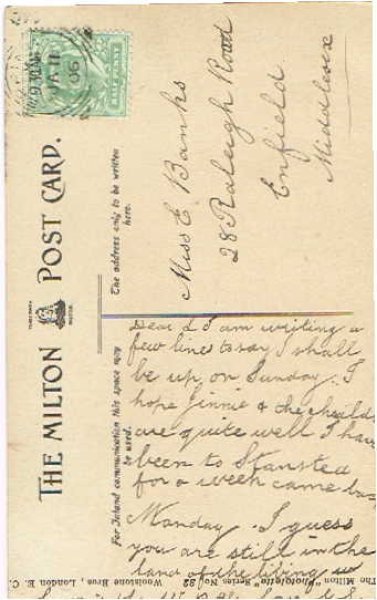 JA 11
06
HALF PENNY
THE MILTON POST CARD.
TRADE MARK
The address only to be written
here.
For Inland communication this space may
be used.
Miss E Banks
28 Raleigh Road
Enfield
Middlesex
Dear L I am writing a
few lines to say I shall
be up on Sunday. I
hope Jinnie & the
are quite well I have
been to Stansted
for a week came
Monday. I guess
you are still in the
land of the living
The Milton "Photolette" Series No. 82 Woolstone Bros., London E. C.